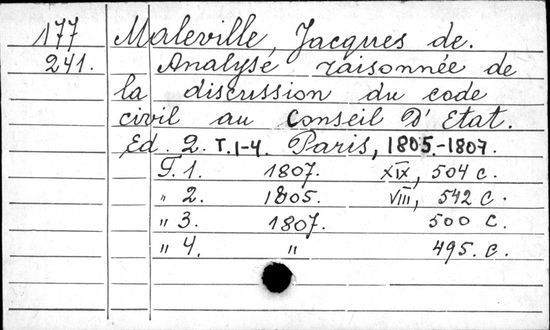 177 Maleville, Jacques de.
241. Analyse raisonnée de
la discussion du code
civil au Conseil D'Etat.
Ed. 2. T.1-4. Paris, 1805.-1807.
T. 1. 1807. XIX, 504 c.
" 2. 1805. VIII, 542 c.
" 3. 1807. 500 c.
" 4. " 495. c.